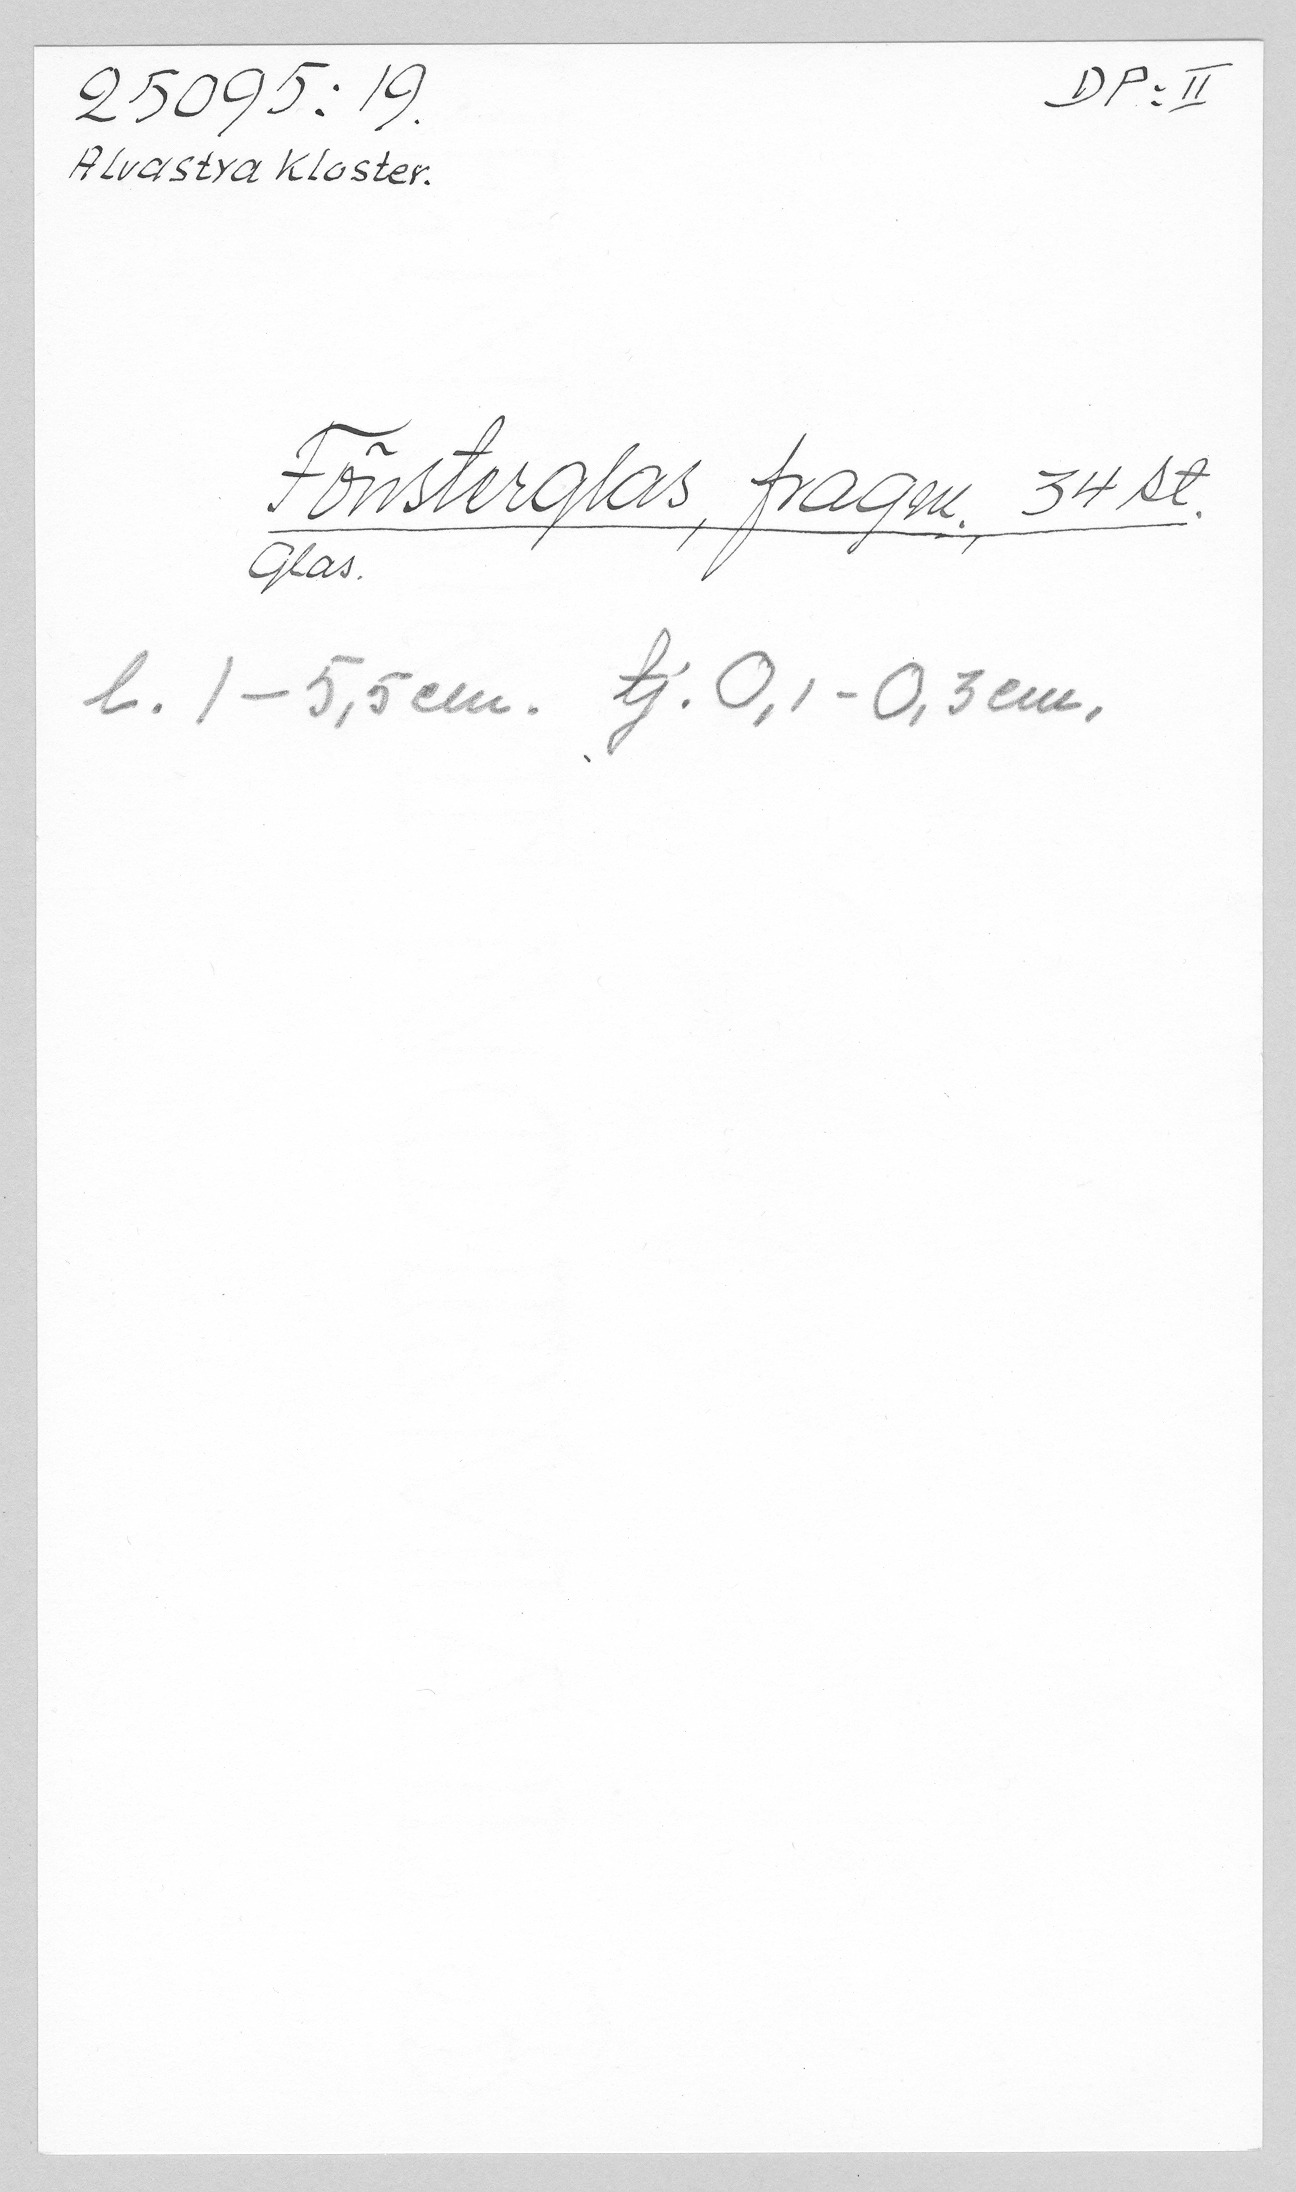 25095:19.
DP:II
Alvastra Kloster.
Fönsterglas, fragm., 34 st.
Glas.
l. 1-5,5cm. tj. 0,1-0,3cm.